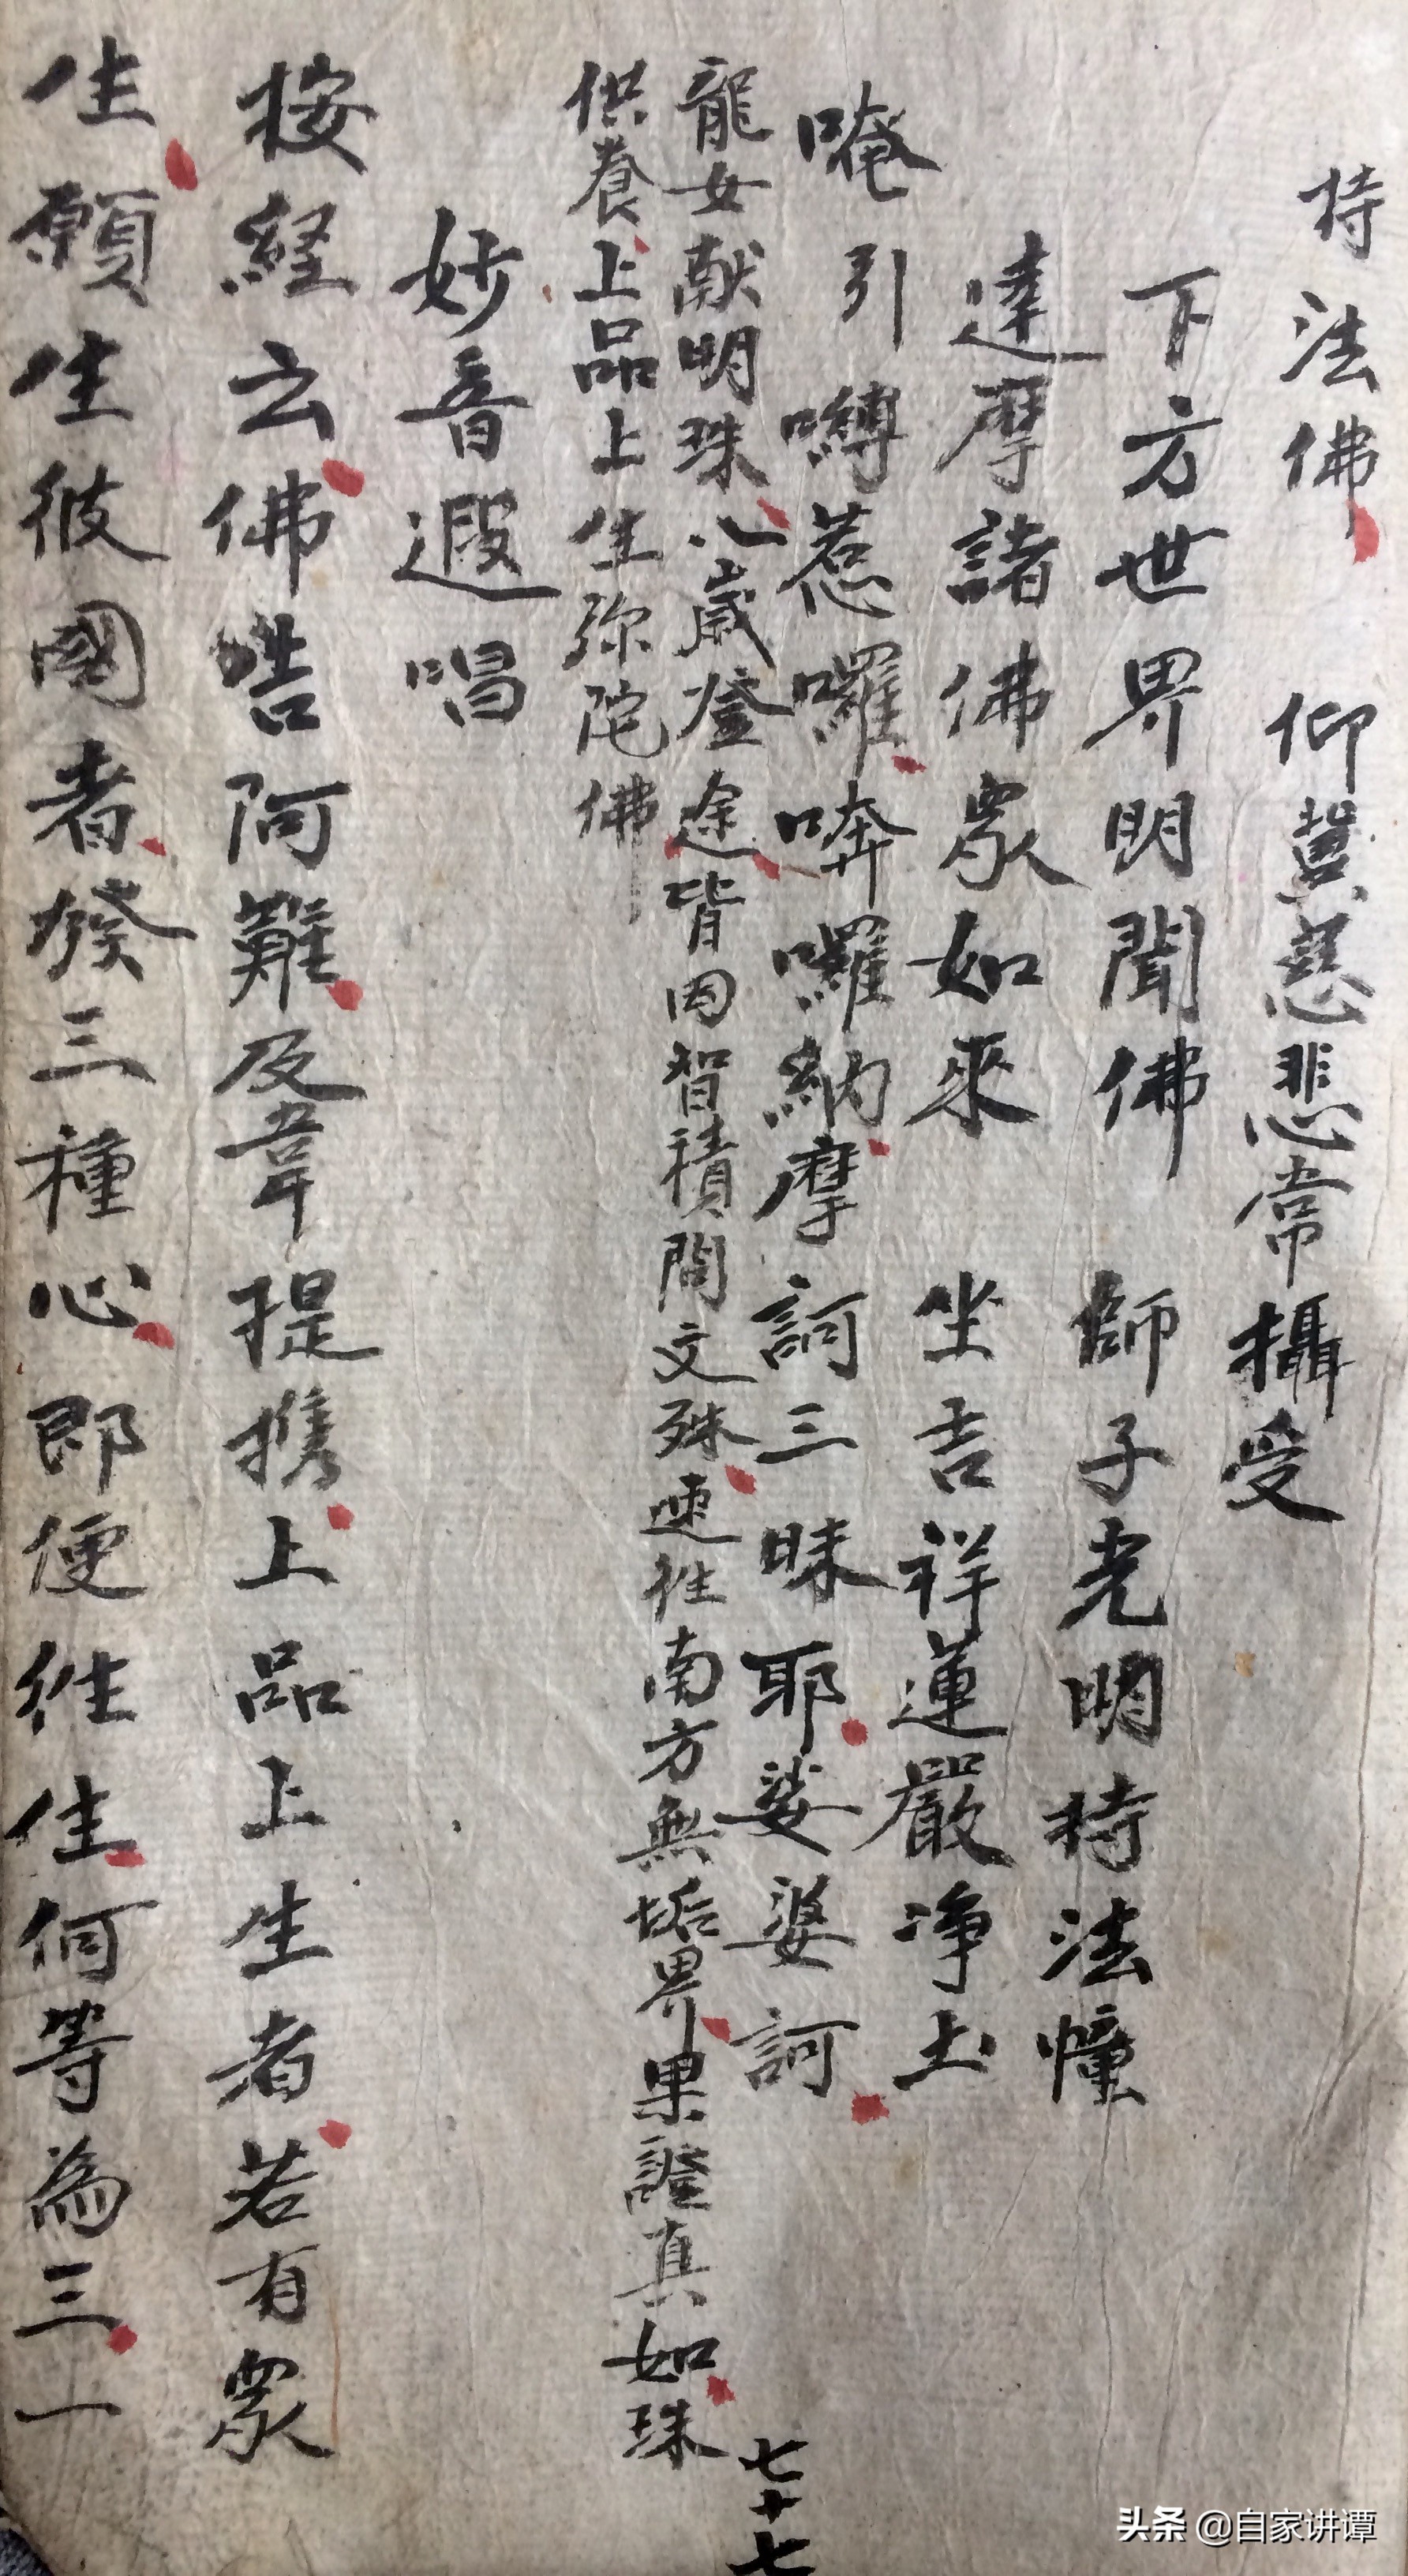 持法佛 仰冀慈悲常攝受
下方世界明聞佛 師子光明持法幢
達摩諸佛眾如來 坐吉祥蓮嚴净土
唵引嚩惹囉喯囉納摩訶三昧耶娑婆訶
龍女献明珠八歲登途皆因智積問文殊速往南方無垢界果證真如珠
供養上品上生弥陀佛
妙音遐唱
按経云佛告阿難及韋提携上品上生者若有眾
生願生彼國者發三種心即便往生何等為三一
七十七
头条 @自家讲谭